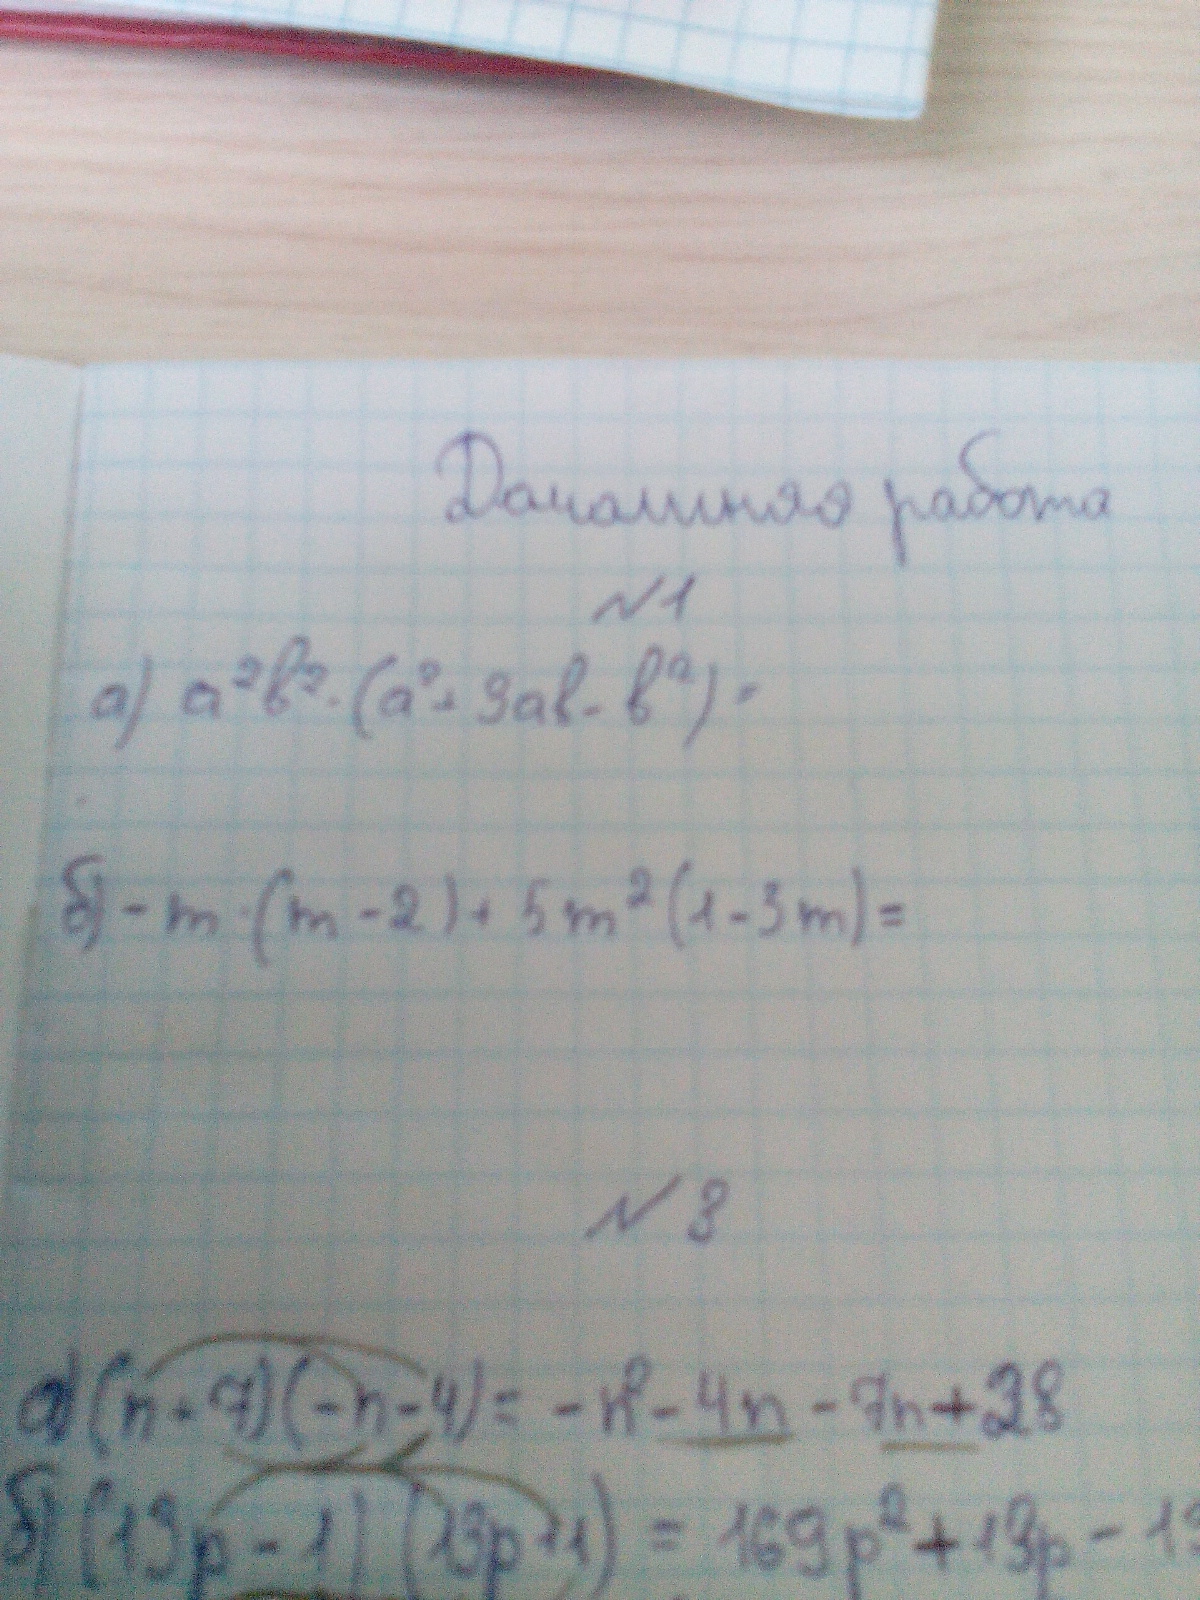 Домашняя работа
№1
а) a²b²·(a²+3ab-b²)=
б) -m·(m-2)+5m²(1-3m)=
№3
а) (n-7)(-n-4)= -n²-4n-7n+28
б) (13p-1)(13p+1) = 169p²+13p-13